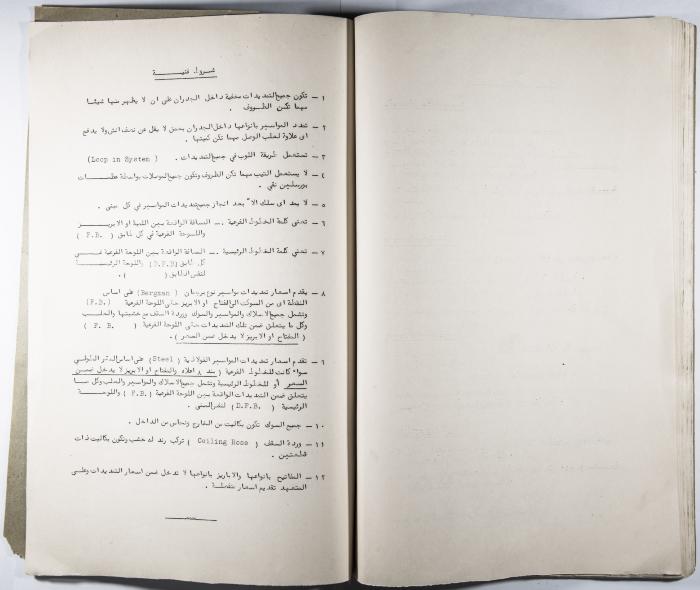 شروط فنيــــة
١ – تكون جميع التمديدات مخفية داخل الجدران على ان لا يظهر منها شيئا
مهما تكن الظروف .
٢ – تمدد المواسير بانواعها داخل الجدران بعمق لا يقل عن نصف انش ولا يدفع
اى علاوة لعلب الوصل مهما تكن كميتها .
٣ – تستعمل طريقة اللوب في جميع التمديدات . ( Loop in System)
٤ – لا يستعمل التيب مهما تكن الظروف وتكون جميع الموصلات بواسطة
بورسلين نقي .
٥ – لا يمد اى سلك الا بعد انجاز جميع تمديدات المواسير في كل مبنى .
٦ – تعني كلمة الخطوط الفرعية .– المسافة الواقعة بين اللمبة او الابريــز
واللوحة الفرعية في كل طابق ( F.B. )
٧ – تعني كلمة الخطوط الرئيسية .– المسافة الواقعة بين اللوحة الفرعية فــي
كل طابق (D.F.B) واللوحة الرئيســة
لنفس الطابق ( ) .
٨ – يقدم اسعار تمديدات مواسير نوع برجمان ( Bergman) على اساس
النقطة اى من السوكت الى المفتاح او الابريز حتى اللوحة الفرعية (F.B.)
وتشمل جميع الاسلاك والمواسير والسوك ووردة السقف مع خشبتها والعلــب
وكل ما يتعلق ضمن تلك التمديدات حتى اللوحة الفرعية ( F. B. )
( المفتاح او الابريز لا يدخل ضمن السعر ) .
٩ – تقدم اسعار تمديدات المواسير الفولاذية ( Steel) على اساس المتر الطولــي
سواء كانت للخطوط الفرعية ( بند ٨ اعلاه والمفتاح او الابريز لا يدخل ضمــن
السعر أو للخطوط الرئيسية وتشمل جميع الاسلاك والمواسير والعلب وكل مــا
يتعلق ضمن التمديدات الواقعة بين اللوحة الفرعية ( F.B.) واللوحــــة
الرئيسية ( D.F.B.) لنفس المبنى .
١٠ – جميع السوك تكون بكاليت من الخارج ونحاس من الداخل .
١١ – وردة السقف ( Ceiling Rose ) تركب خشب وتكون بكاليت ذات
قطعتين .
١٢ – المفاتيح بانواعها والاباريز بانواعها لا تدخل ضمن اسعار التمديدات وعلى
المتعهد تقديم اسعار منفصلة .